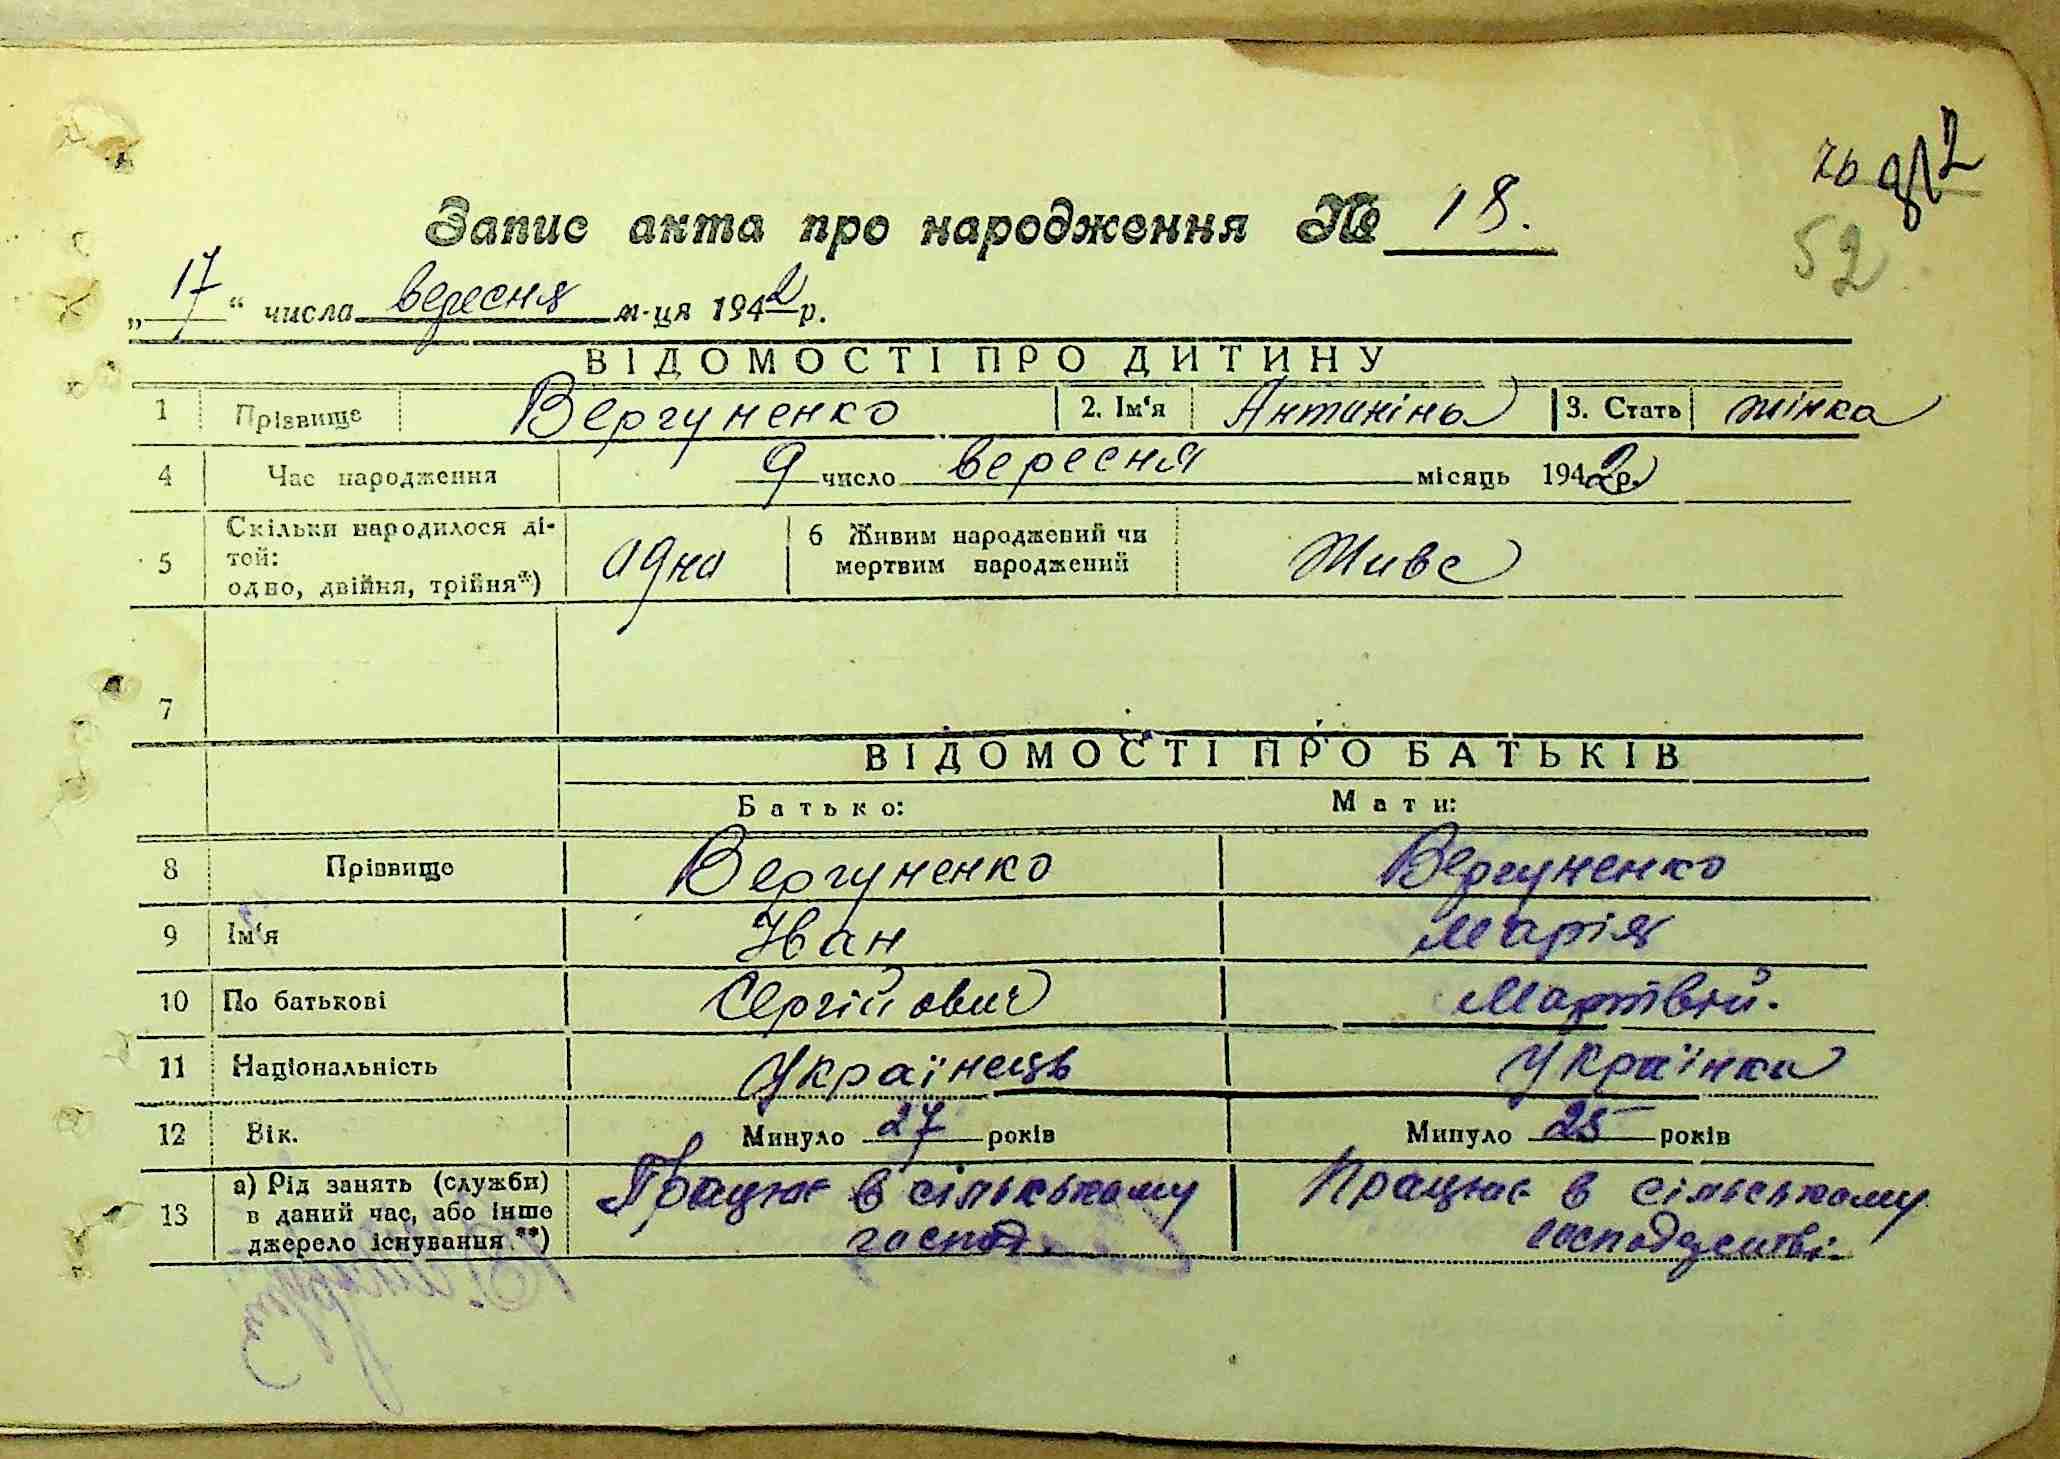 Запис акта про народження № 18.
52
„17“ числа вересня м-ця 1942 р.
ВІДОМОСТІ ПРО ДИТИНУ
1 Прізвище Вергуненко 2. Ім'я Антиніна 3. Стать жінка
4 Час народження 9 число вересня місяць 1942 р.
5 Скільки народилося ді-
тей:
одно, двійня, трійня*) одна
6 Живим народжений чи
мертвим народжений Живе
7
ВІДОМОСТІ ПРО БАТЬКІВ
Батько: Мати:
8 Прізвище Вергуненко Вергуненко
9 Ім'я Іван Марія
10 По батькові Сергійович Мартівни.
11 Національність Українець Українка
12 Вік. Минуло 27 років Минуло 25 років
13 а) Рід занять (служби)
в даний час, або інше
джерело існування **)
Працює в сільському
господ.
Працює в сільському
господарстві.